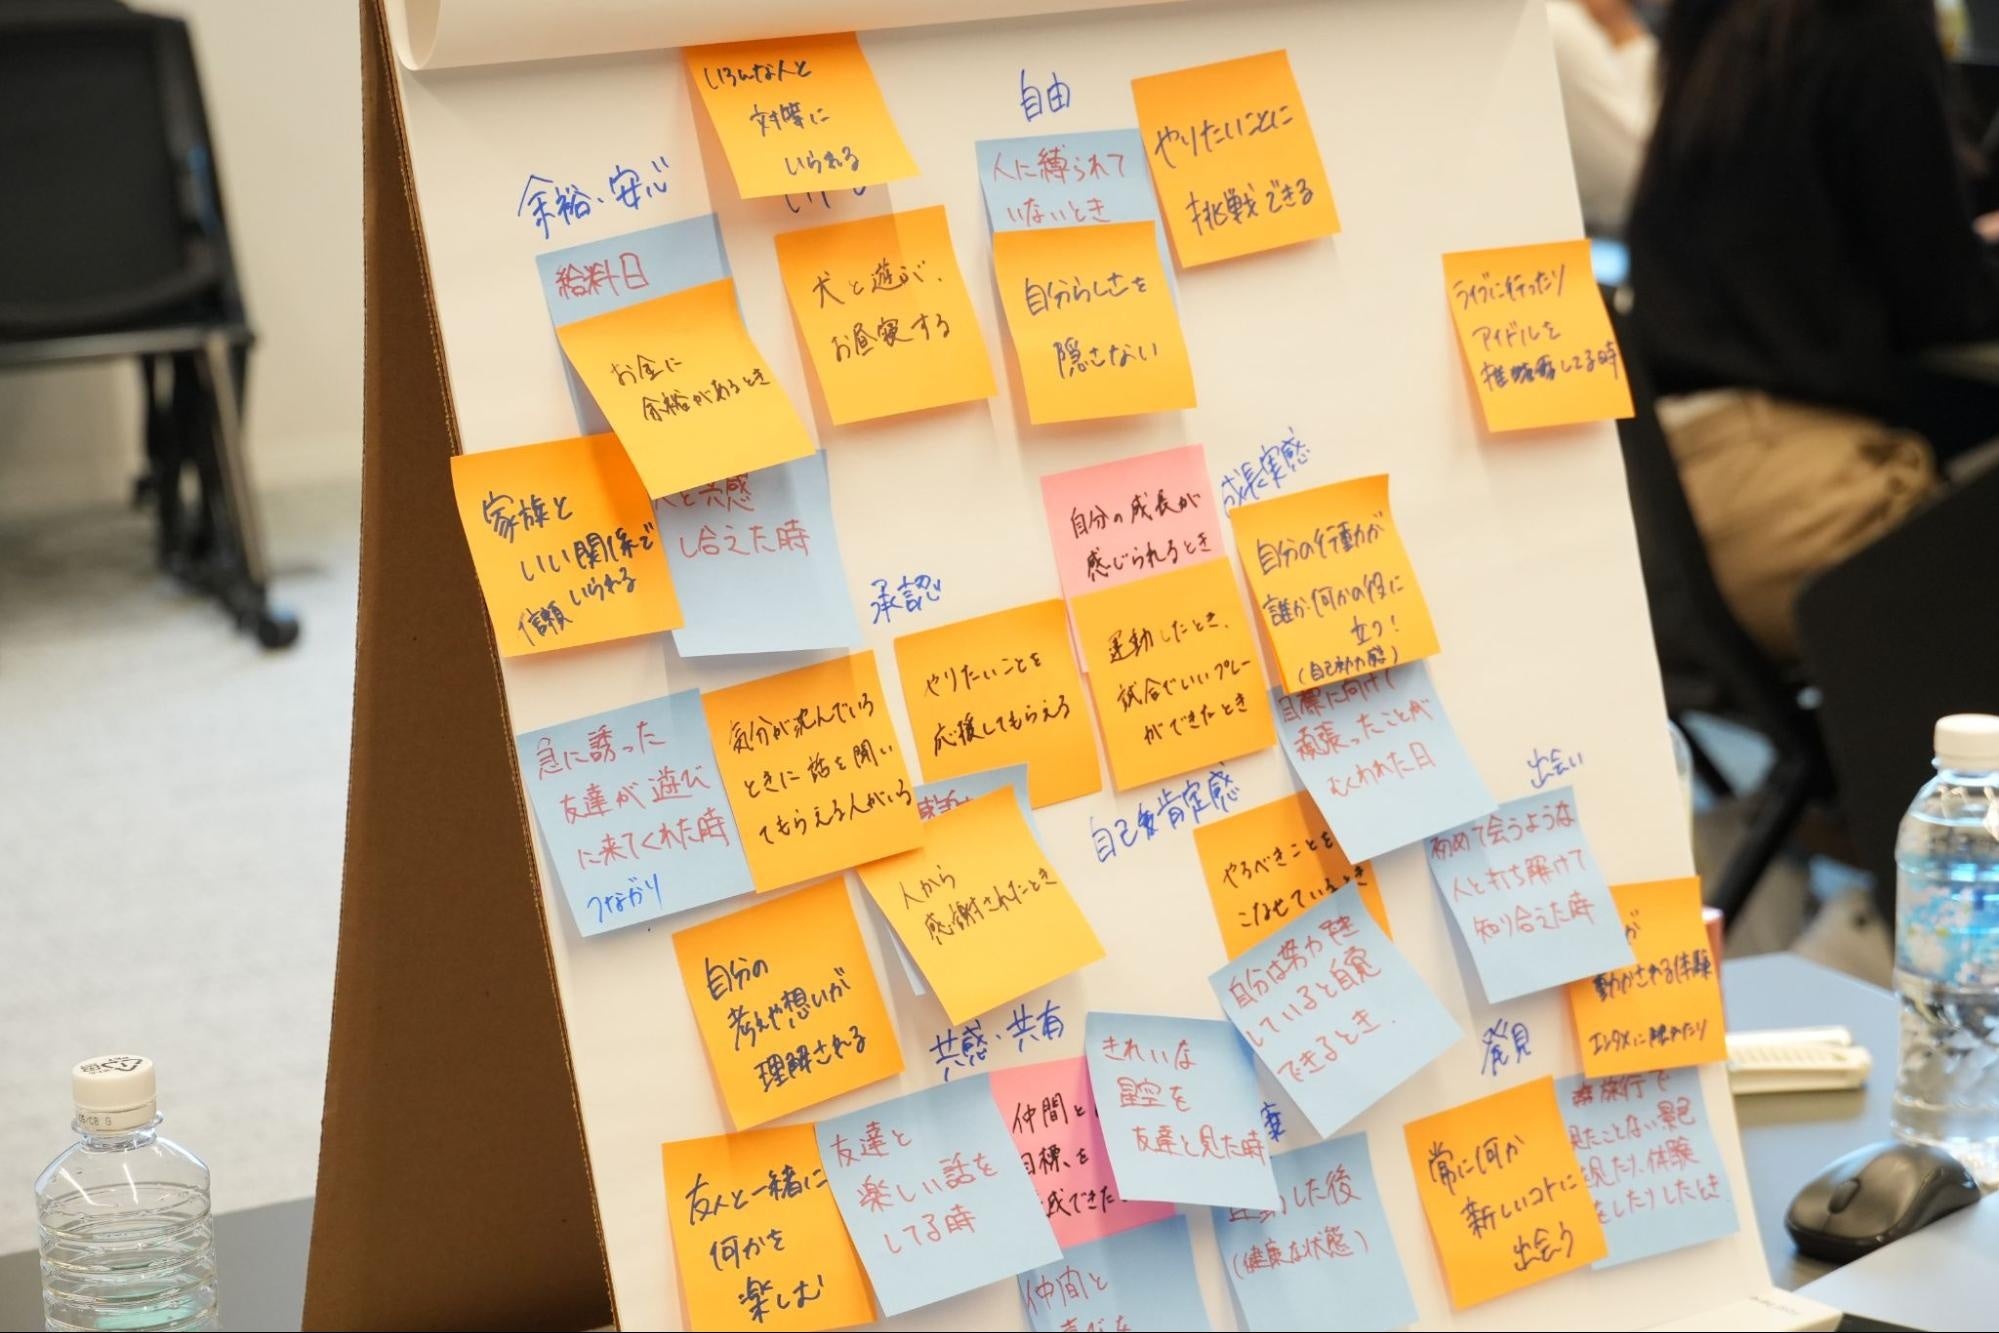 いろんな人と
対等に
いられる
自由
やりたいことに
挑戦できる
人に縛られて
いないとき
余裕・安心
給料日
お金に
余裕があるとき
犬と遊び、
お昼寝する
自分らしさを
隠さない
ライブに行ったり
アイドルを
してる時
家族と
いい関係で
信頼いられる
人と共感
し合えた時
成長実感
自分の成長が
感じられるとき
自分の行動が
誰か何かの役に
立つ!
承認
やりたいことを
応援してもらえる
運動したとき、
試合でいいプレー
ができたとき
目標に向けて
頑張ったことが
むくわれた日
急に誘った
友達が遊び
に来てくれた時
つながり
気分が沈んでいる
ときに話を聞い
てもらえる人がいる
人から
感謝されたとき
自己肯定感
やるべきことを
こなせているとき
自分は努力
していると自覚
できるとき.
出会い
初めて会うような
人と打ち解けて
知り合えた時
が
動かされる体験
エンタメに
自分の
考えや想いが
理解される
共感・共有
友人と一緒に
何かを
楽しむ
友達と
楽しい話を
してる時
仲間と
目標を
成できた
きれいな
星空を
友達と見た時
した後
(健康な状態)
仲間と
発見
常に何か
新しいコトに
出会う
旅行で
見たことない景色
見たり、体験
をしたりしたとき